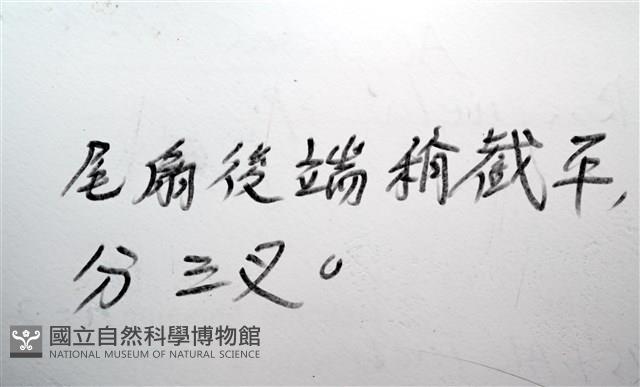 尾扇後端稍截平,
分三叉。
國立自然科學博物館
NATIONAL MUSEUM OF NATURAL SCIENCE